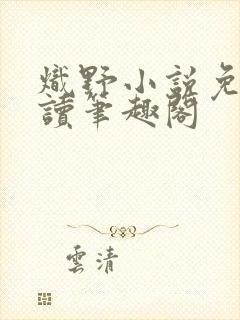 熾野小説免
讀筆趣閣
雲清